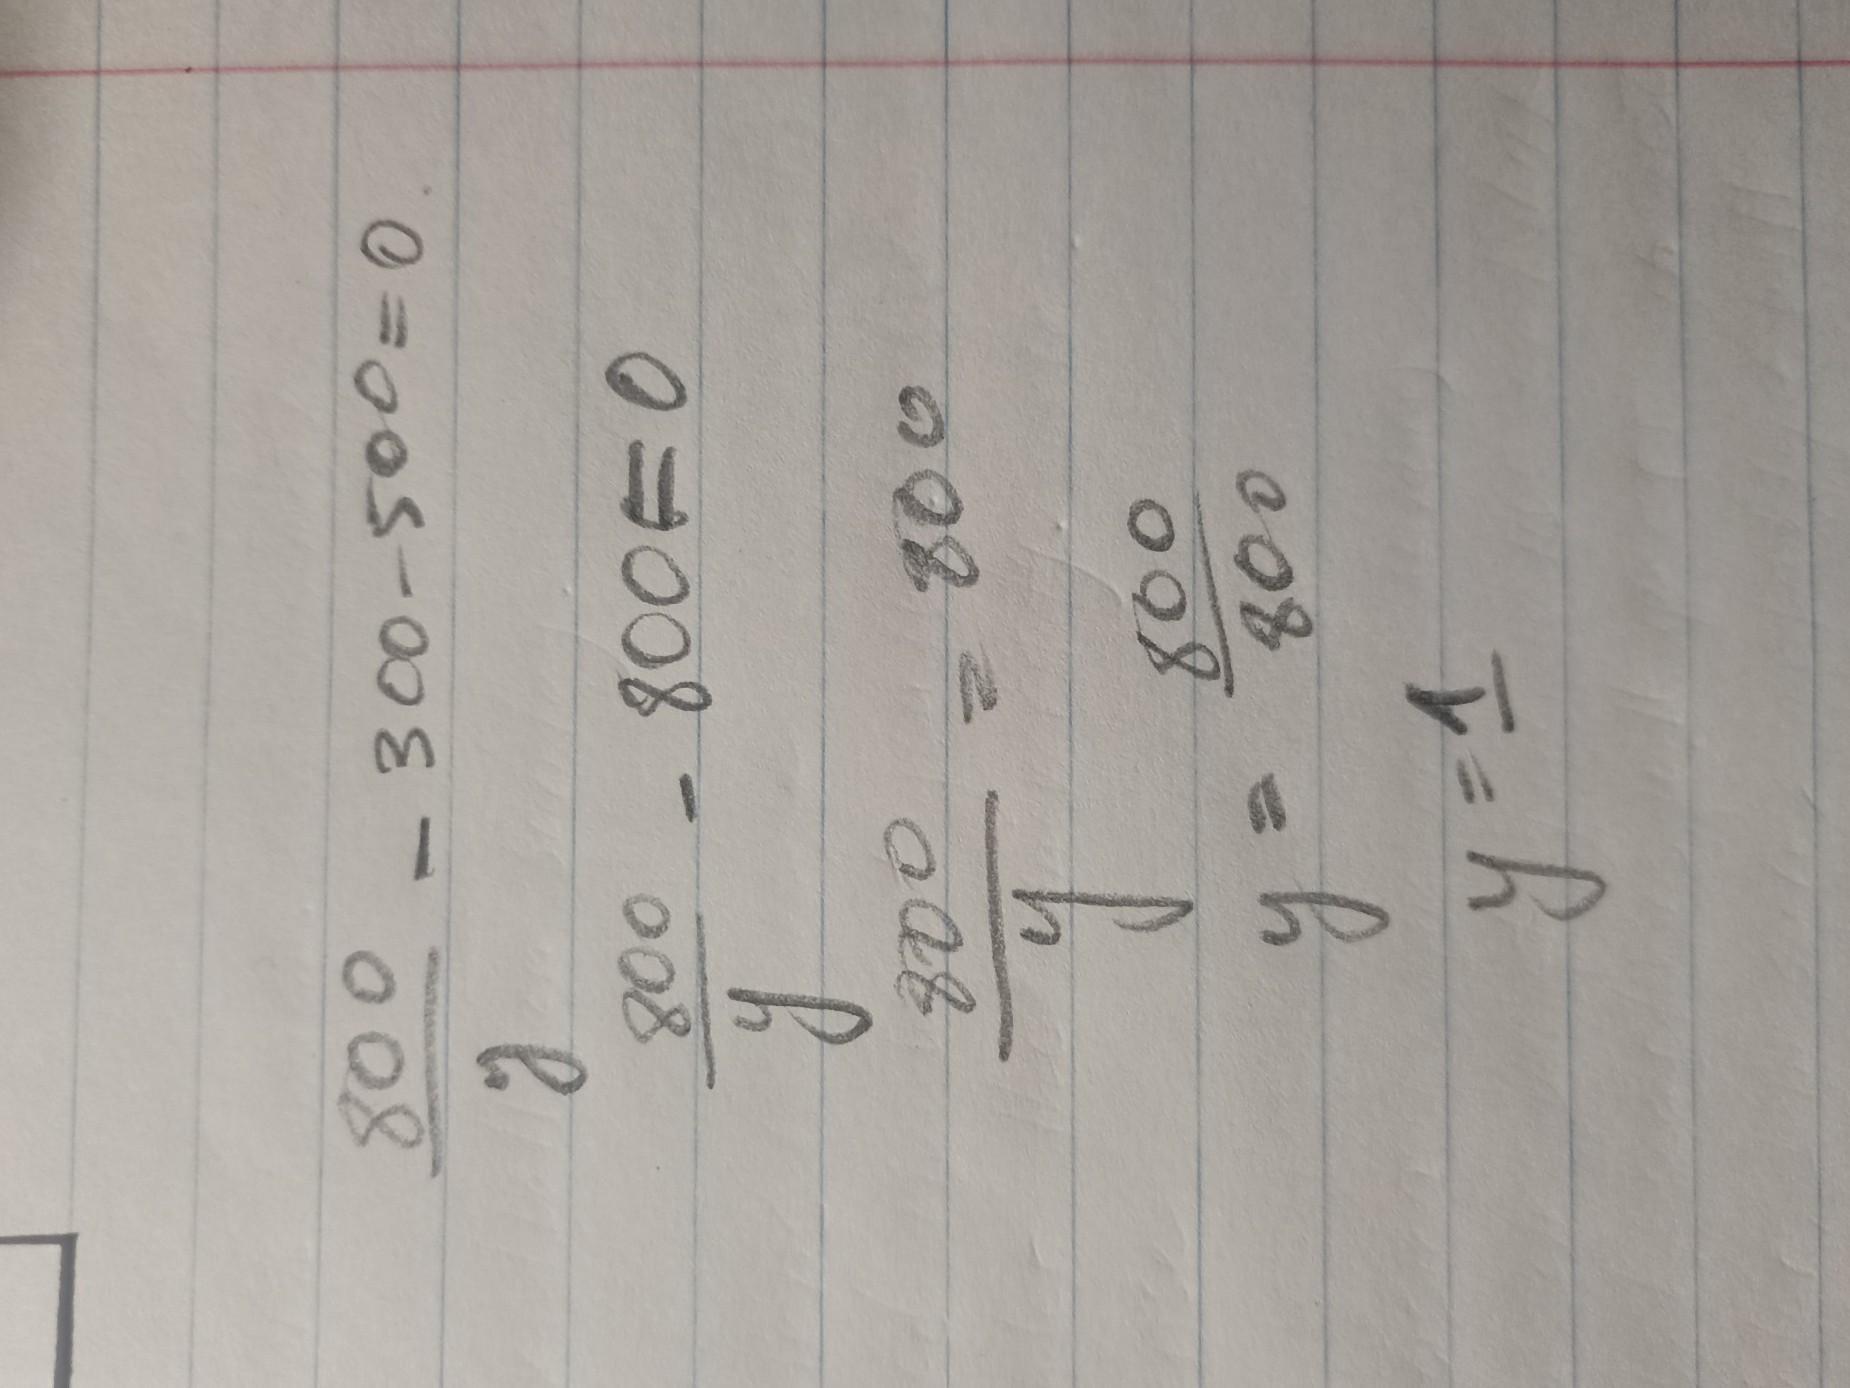 800/y - 300 - 500 = 0.
800/y - 800 = 0
800/y = 800
y = 800/800
y = 1